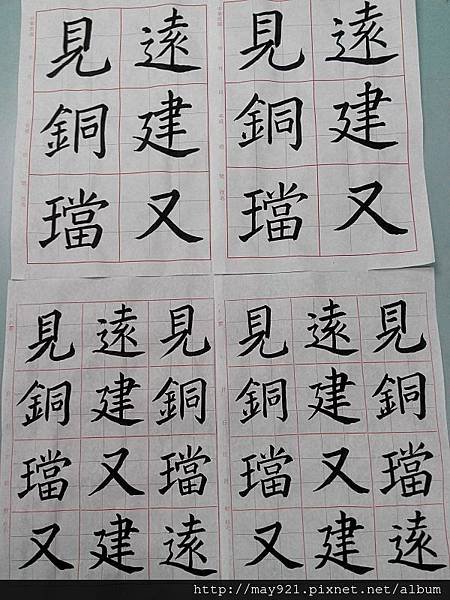 遠建又
見銅璫
遠建又
見銅璫
見銅璫遠
遠建又建
見銅璫又
見銅璫遠
遠建又建
見銅璫又
http://may921.pixnet.net/album